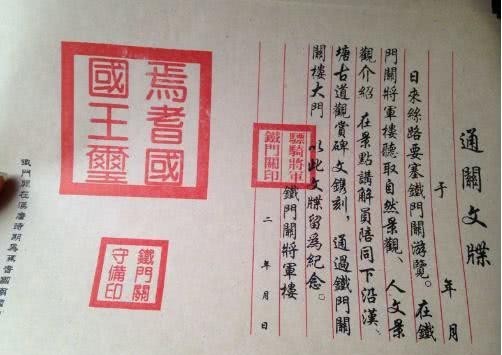 通關文牒
于 年 月
日來絲路要塞鐵門關游覽。在鐵
門關將軍樓聽取自然景觀、人文景
觀介紹 在景點講解員陪同下沿漢、
塘古道觀賞碑文鐫刻，通過鐵門關
闕樓大門 以此文牒留爲紀念。
驃騎將軍
鐵門關印
鐵門關將軍樓
二 年 月 日
焉耆國
國王璽
鐵門關
守備印
鐵門關在漢唐時期爲焉耆國